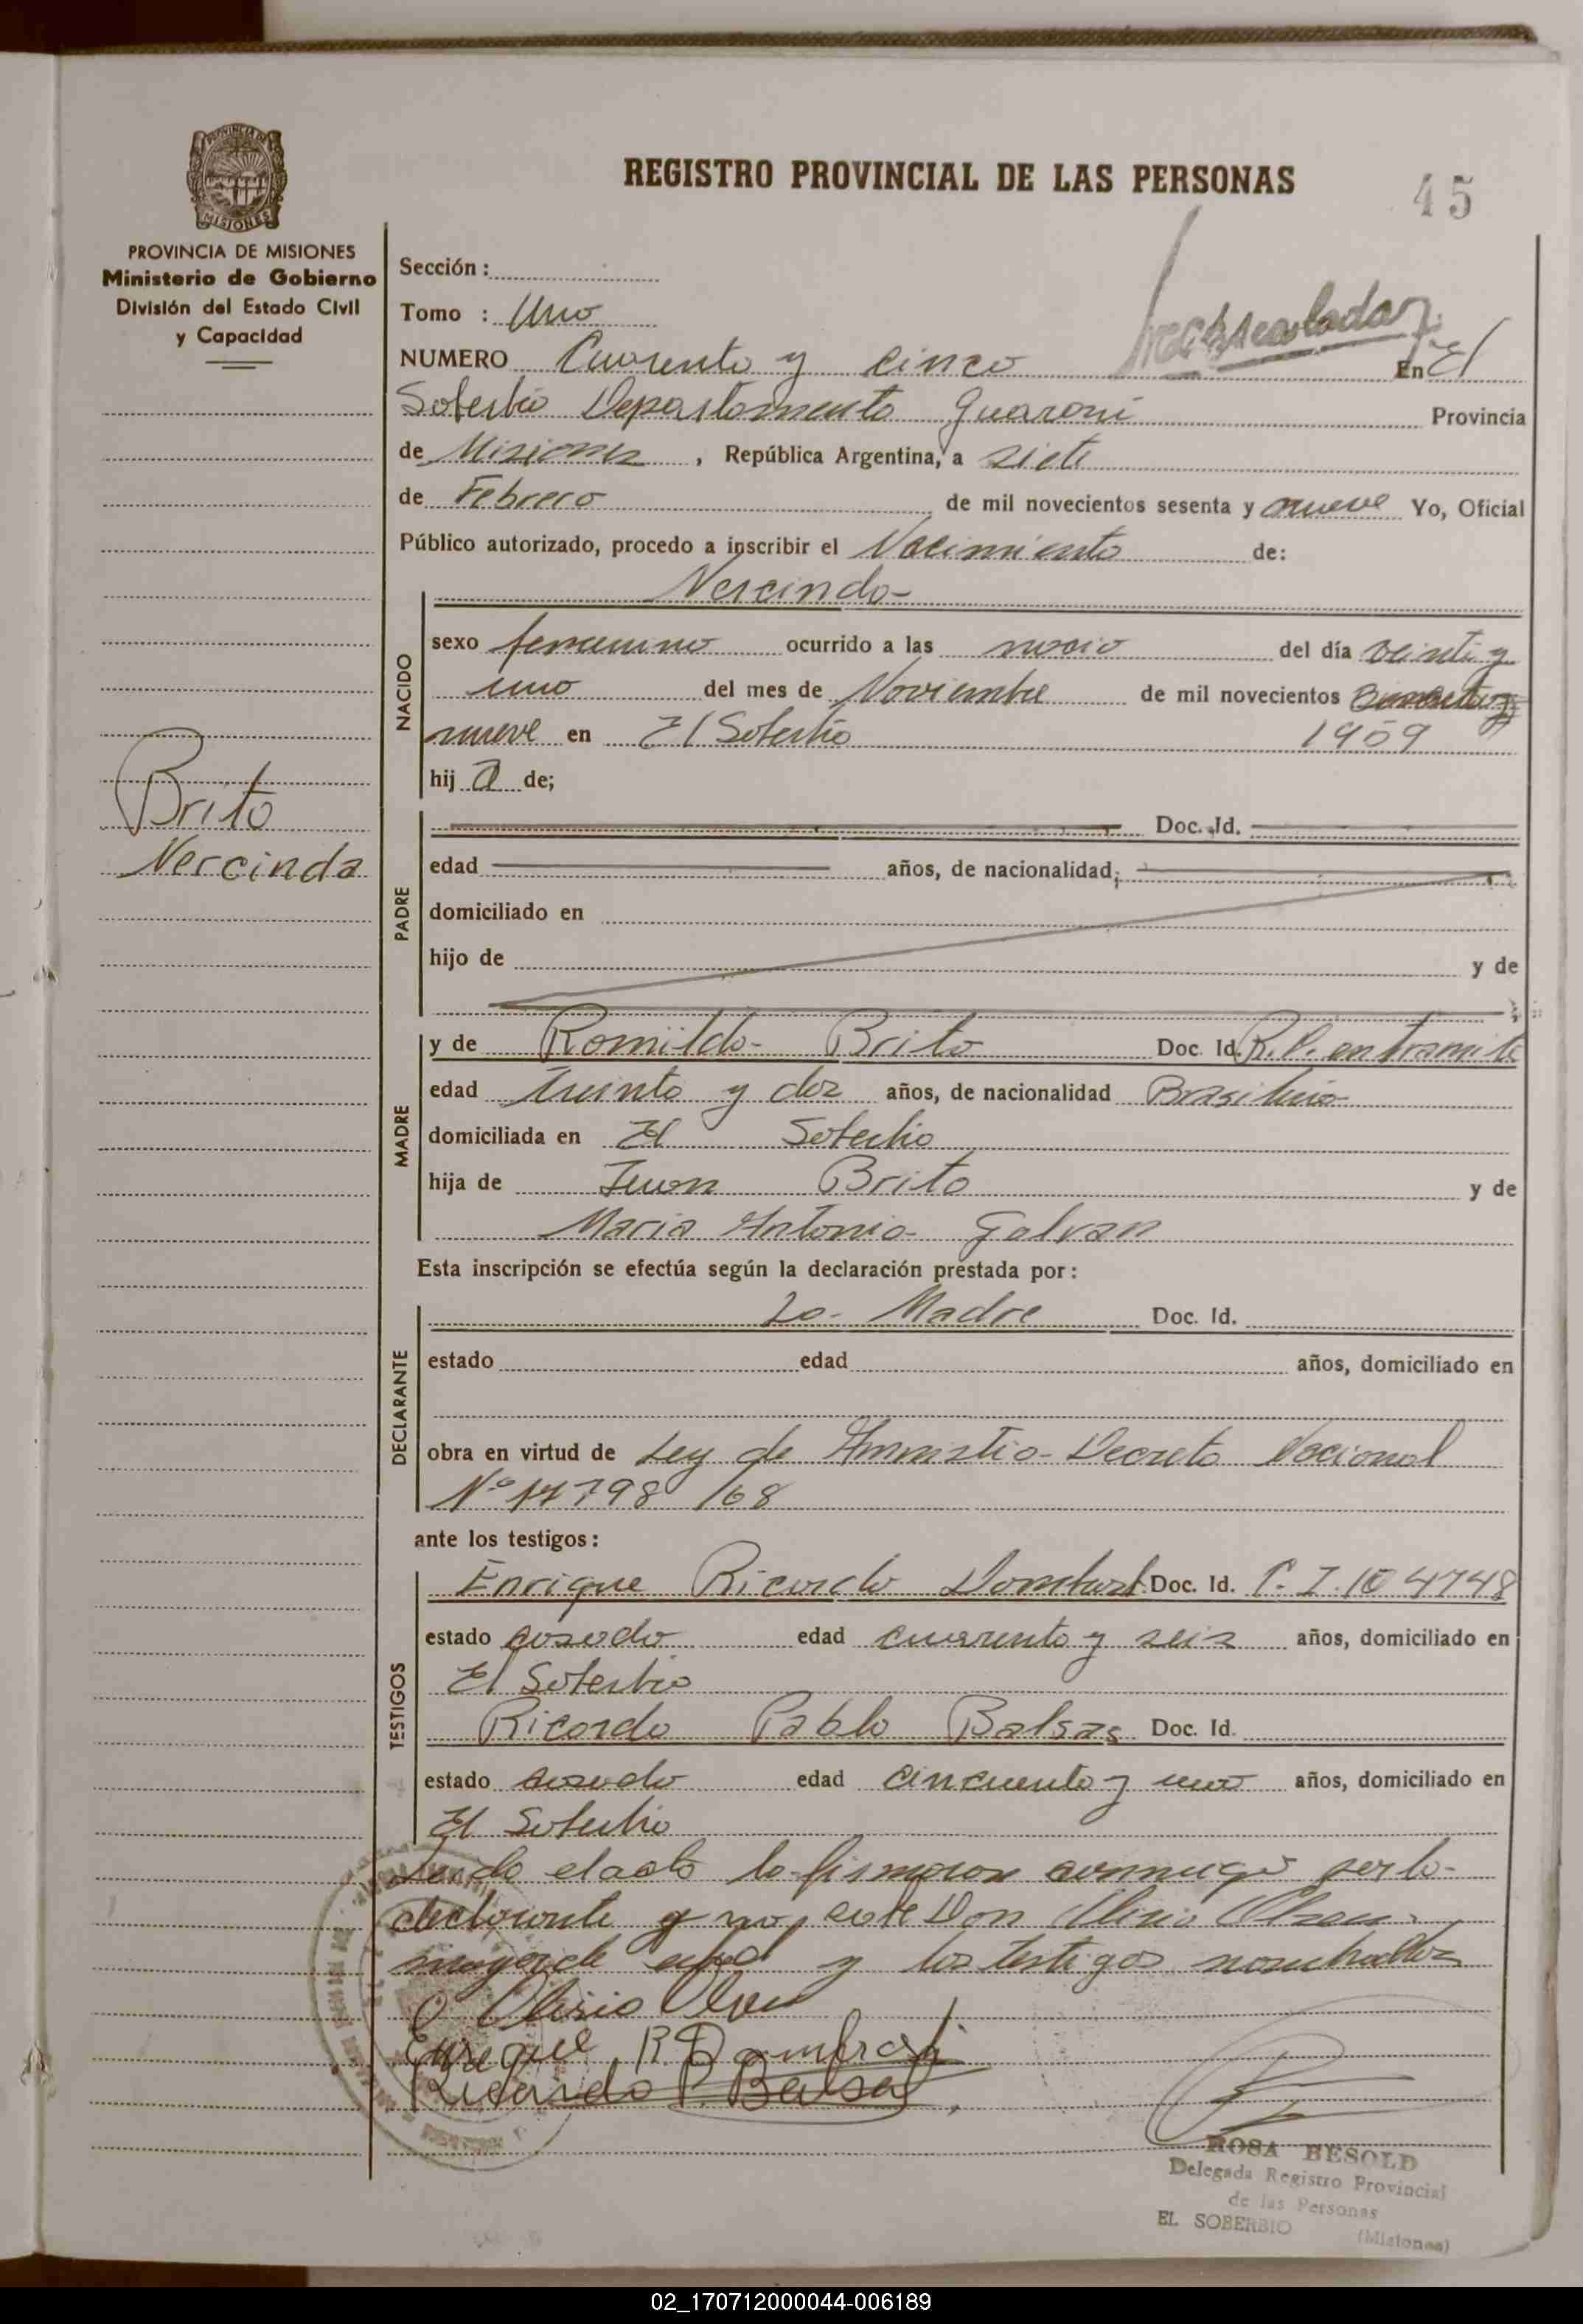 REGISTRO PROVINCIAL DE LAS PERSONAS
45
PROVINCIA DE MISIONES
MISIONES
PROVINCIA DE MISIONES
Ministerio de Gobierno
División del Estado Civil
y Capacidad
Brito
Nercinda
Sección :
Tomo : Uno
NUMERO Cuarenta y cinco En El
Soberbio Departamento Guarani Provincia
de Misiones , República Argentina, a siete
de Febrero de mil novecientos sesenta y nueve Yo, Oficial
Público autorizado, procedo a inscribir el Nacimiento de:
Nercinda-
NACIDO
sexo femenino ocurrido a las del día veinti y
uno del mes de Noviembre de mil novecientos
nueve en El Soberbio 1959
hij a de;
PADRE
Doc. Id.
edad años, de nacionalidad
domiciliado en
hijo de y de
MADRE
y de Romilda- Brito Doc. Id. R.P. en tramite
edad treinta y dos años, de nacionalidad Brasilera
domiciliada en El Soberbio
hija de Juan Brito y de
Maria Antonia- Galvan
Esta inscripción se efectúa según la declaración prestada por :
DECLARANTE
La- Madre Doc. Id.
estado edad años, domiciliado en
obra en virtud de Ley de Amnistia- Decreto Nacional
Nº 17798/68
ante los testigos :
TESTIGOS
Enrique Ricardo Doc. Id. C. I. 104748
estado casado edad cuarenta y seis años, domiciliado en
El Soberbio
Ricardo Pablo Balsas Doc. Id.
estado casado edad cincuenta y uno años, domiciliado en
El Soberbio
Leido el acto la firmaron conmigo por la-
declarante Don
mayor de edad y los testigos nombrados
Enrique R.
Ricardo P. Balsa
ROSA BESOLD
Delegada Registro Provincial
de las Personas
EL SOBERBIO (Misiones)
02_170712000044-006189